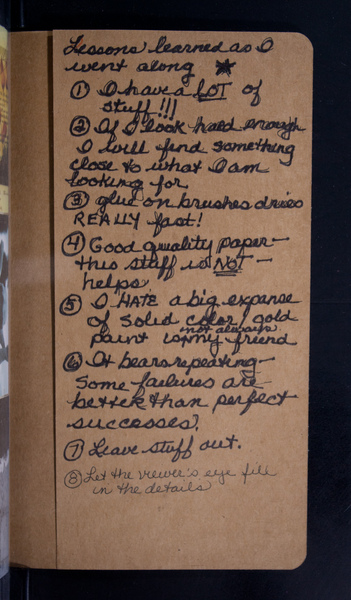 Lessons learned as I
went along ★
① I have a LOT of
stuff!!!
② If I look hard enough
I will find something
close to what I am
looking for
③ glue on brushes dries
REALLY fast!
④ Good quality paper —
this stuff is NOT —
helps.
⑤ I HATE a big expanse
of solid color/gold
not always
paint is my friend
⑥ It bears repeating —
Some failures are
better than perfect
successes.
⑦ Leave stuff out.
⑧ Let the viewer's eye fill
in the details